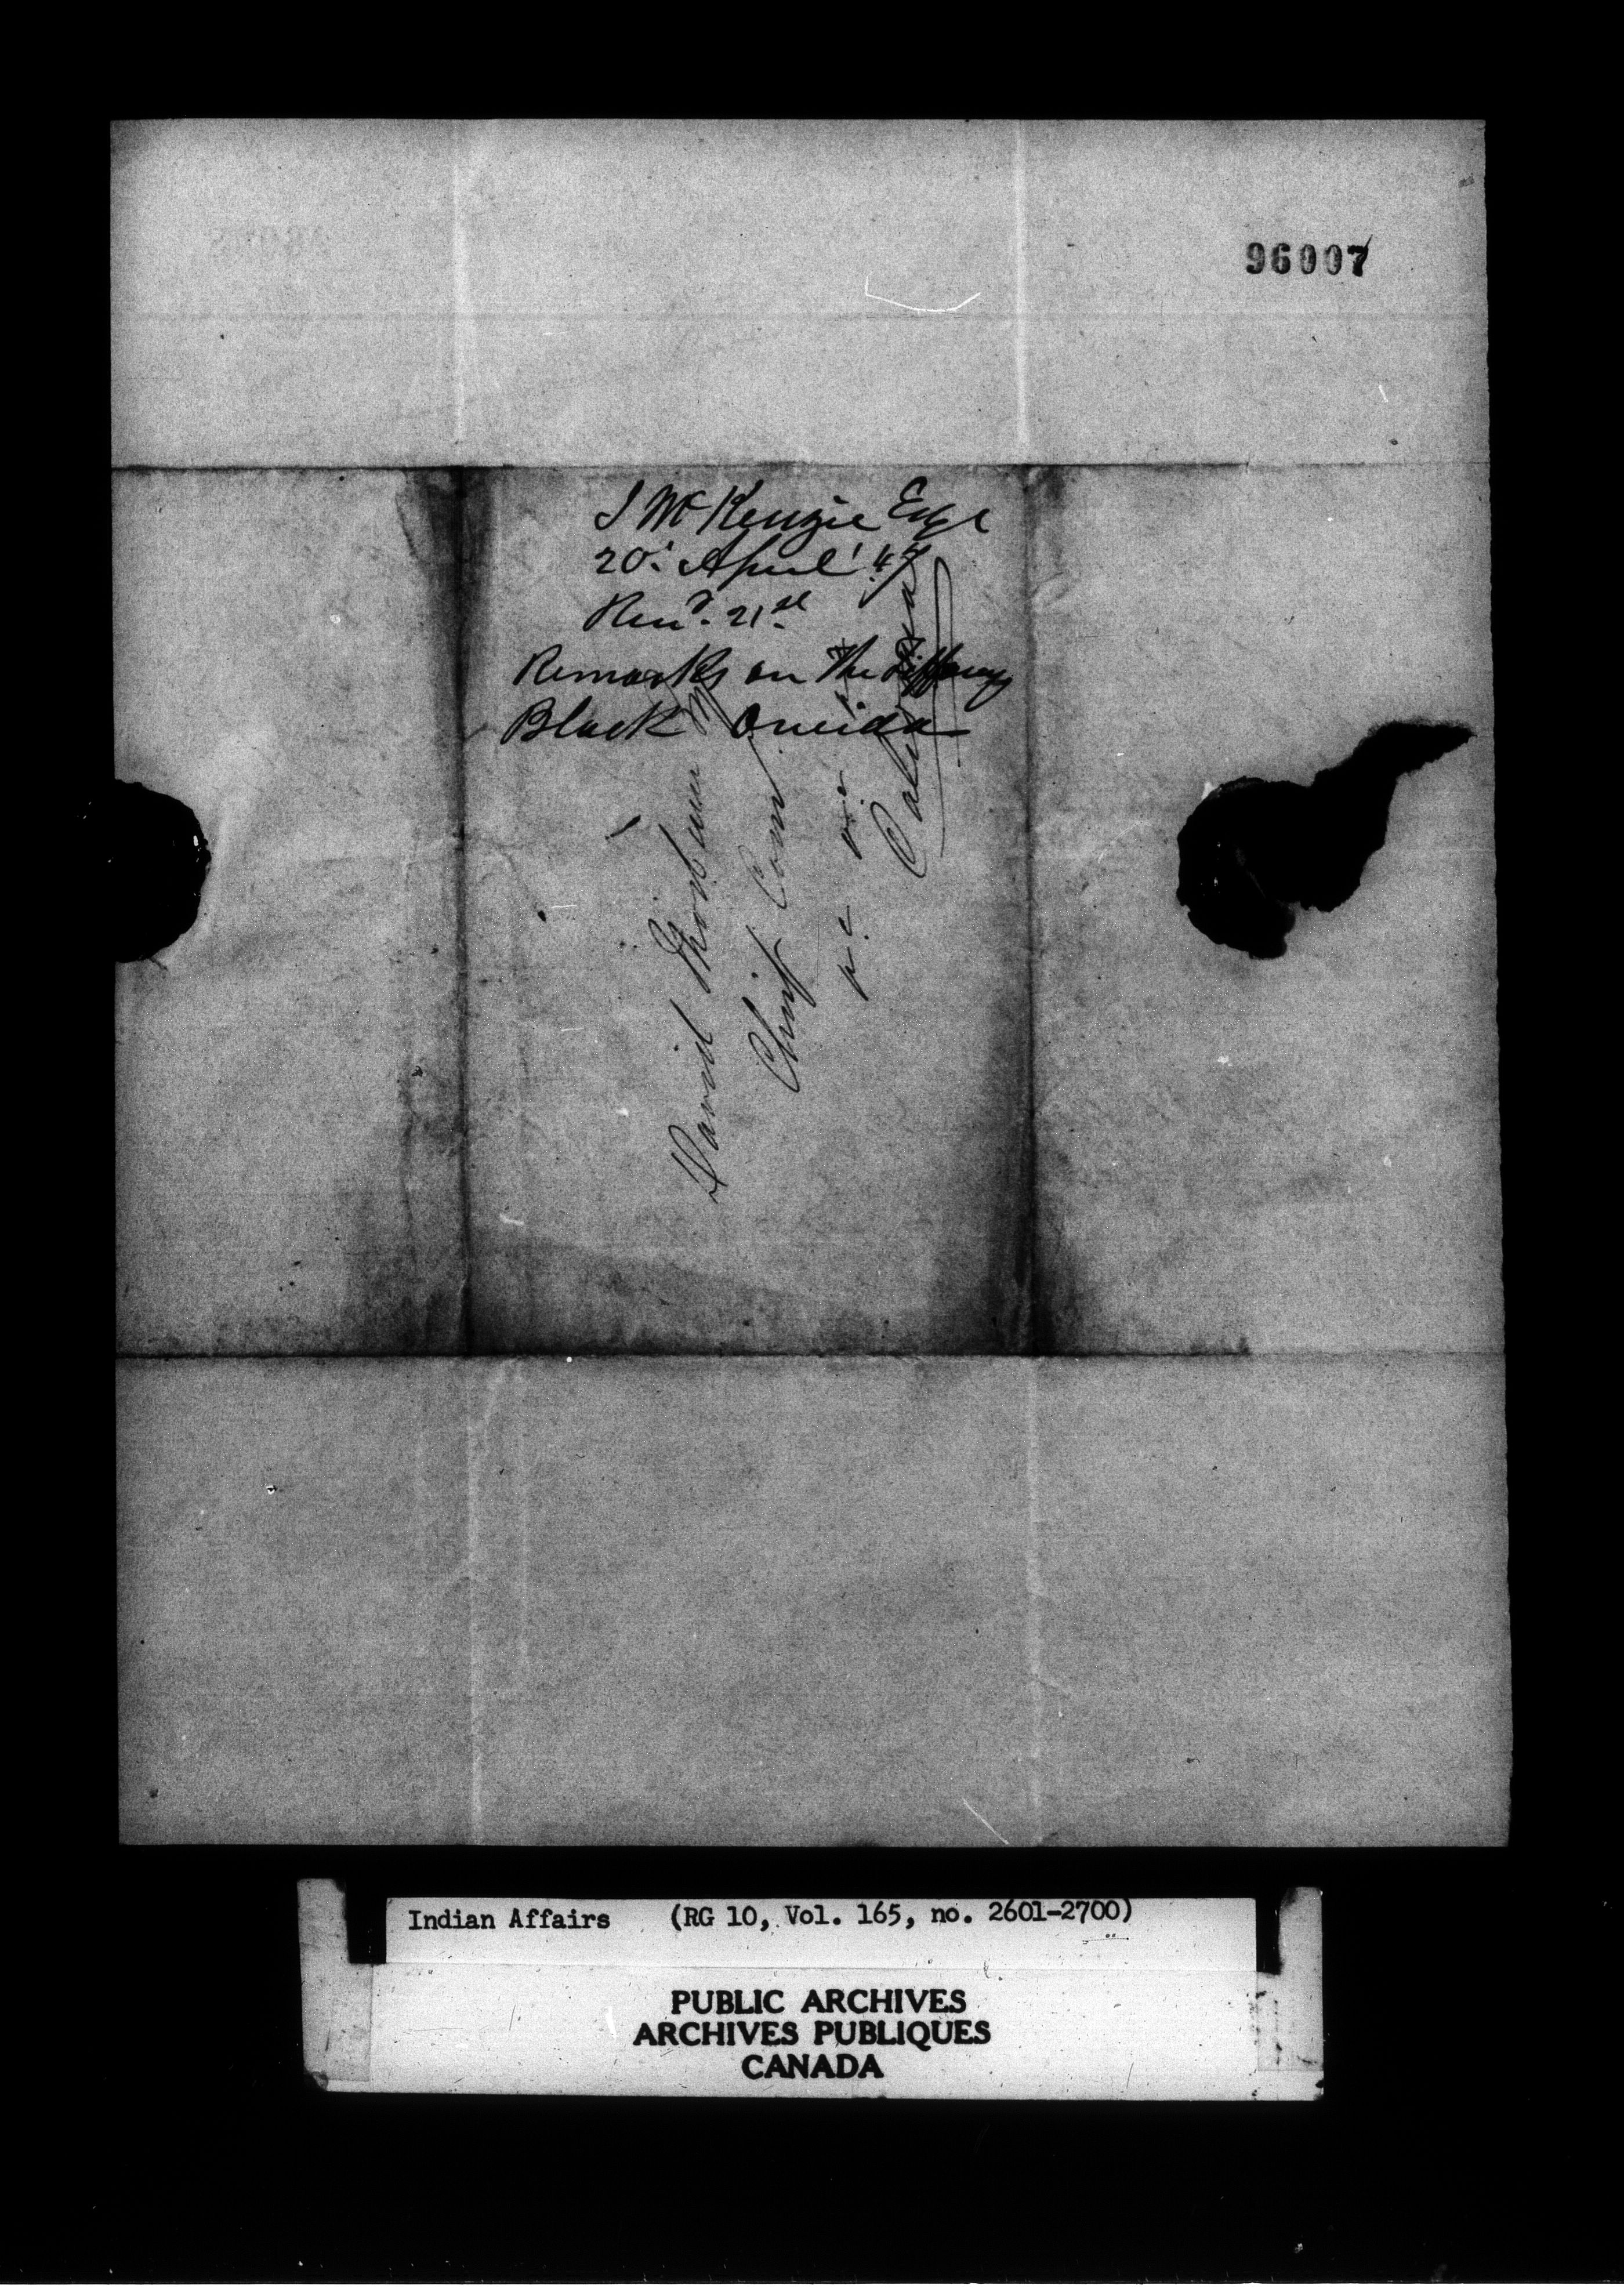 96007
J McKenzie Esqr
20. April '47
Recd. 21st
Remarks on the Tiffany
Black Oneida
David Thorburn
Chief Com
&c &c &c
Indian Affairs (RG 10, Vol. 165, no. 2601-2700)
PUBLIC ARCHIVES
ARCHIVES PUBLIQUES
CANADA